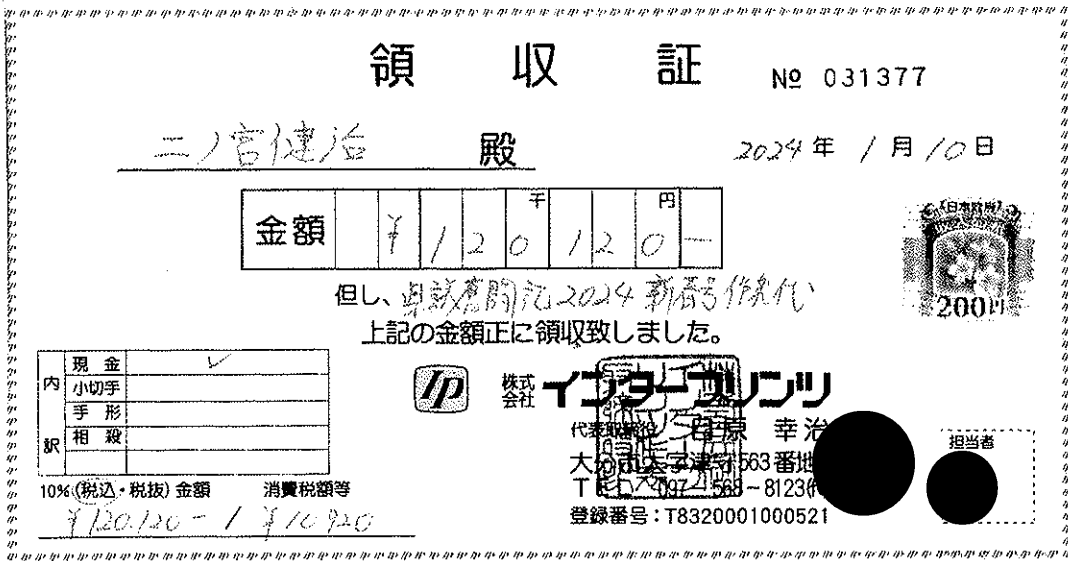 領収証
№ 031377
二ノ宮健治 殿
2024年 1月10日
金額 ¥120千120円-
但し、県議奮闘記2024新春号作成代
上記の金額正に領収致しました。
日本政府
200円
内訳
現金 ✓
小切手
手形
相殺
10%(税込・税抜)金額 消費税額等
¥120.120- / ¥10920
IP 株式会社 インタープリンツ
代表取締役 幸治
大分市大字津守563番地
TEL 097-568-8123
登録番号:T8320001000521
担当者